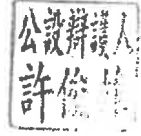 公設辯護人
許俊